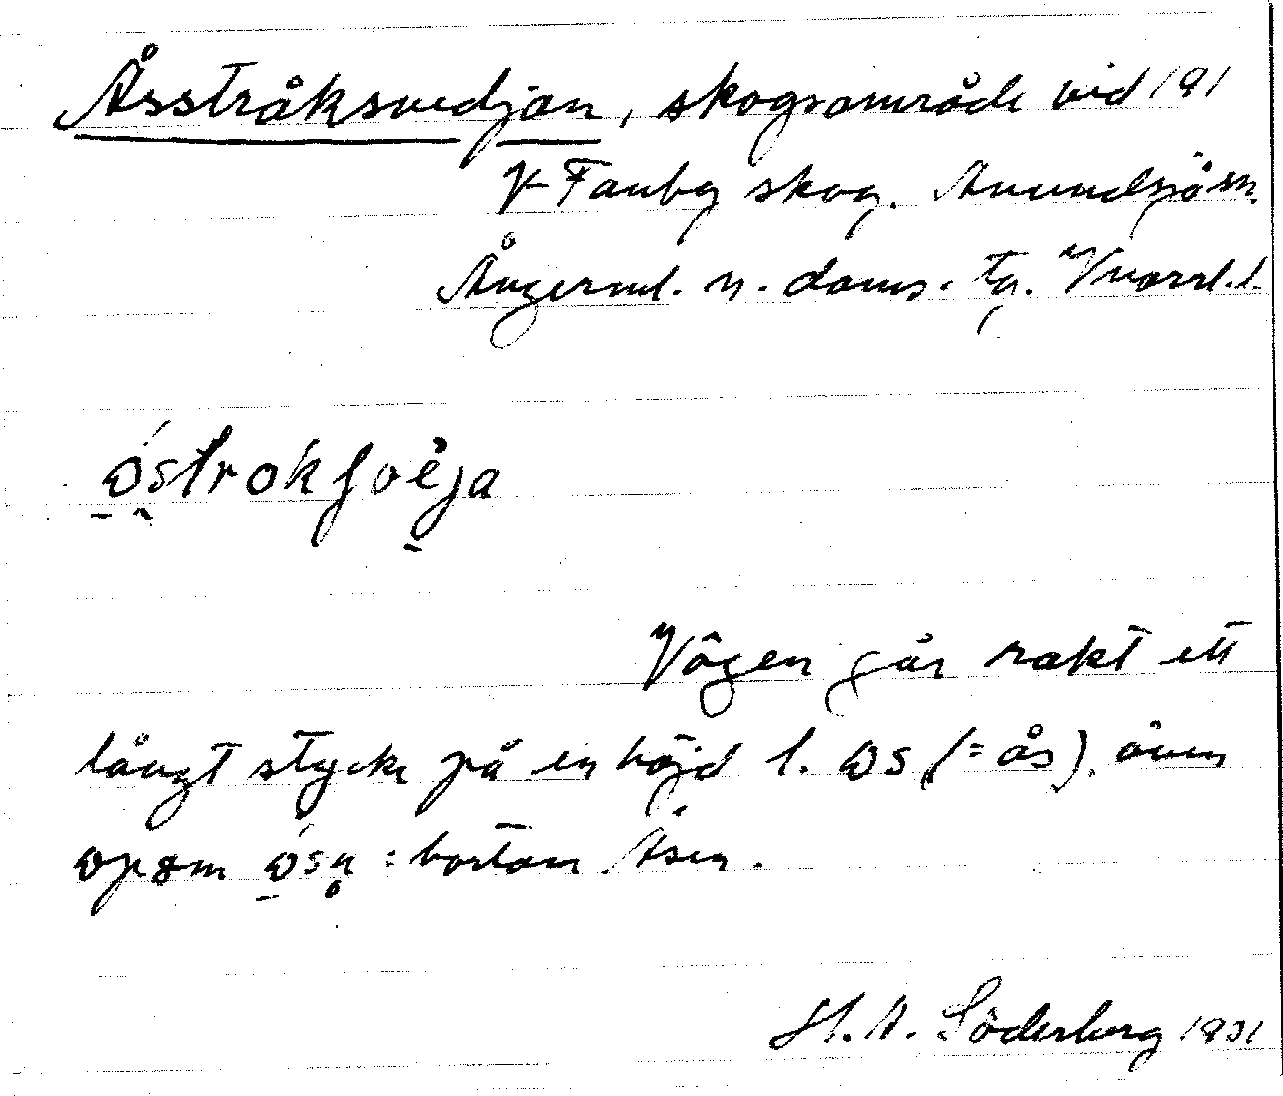 Åsstråksvedjan, skogsområde vid 191
V Tanby skog. Anundsjö sn.
Ångerml. n. doms. tg. Vnorrl. l.
ɷstrokʃveja
Vägen går rakt ett
långt stycke på en höjd l. ɷs (= ås), även
ɷpəm ɷsn̥ = bortom Åsen.
H. A. Söderberg 1931